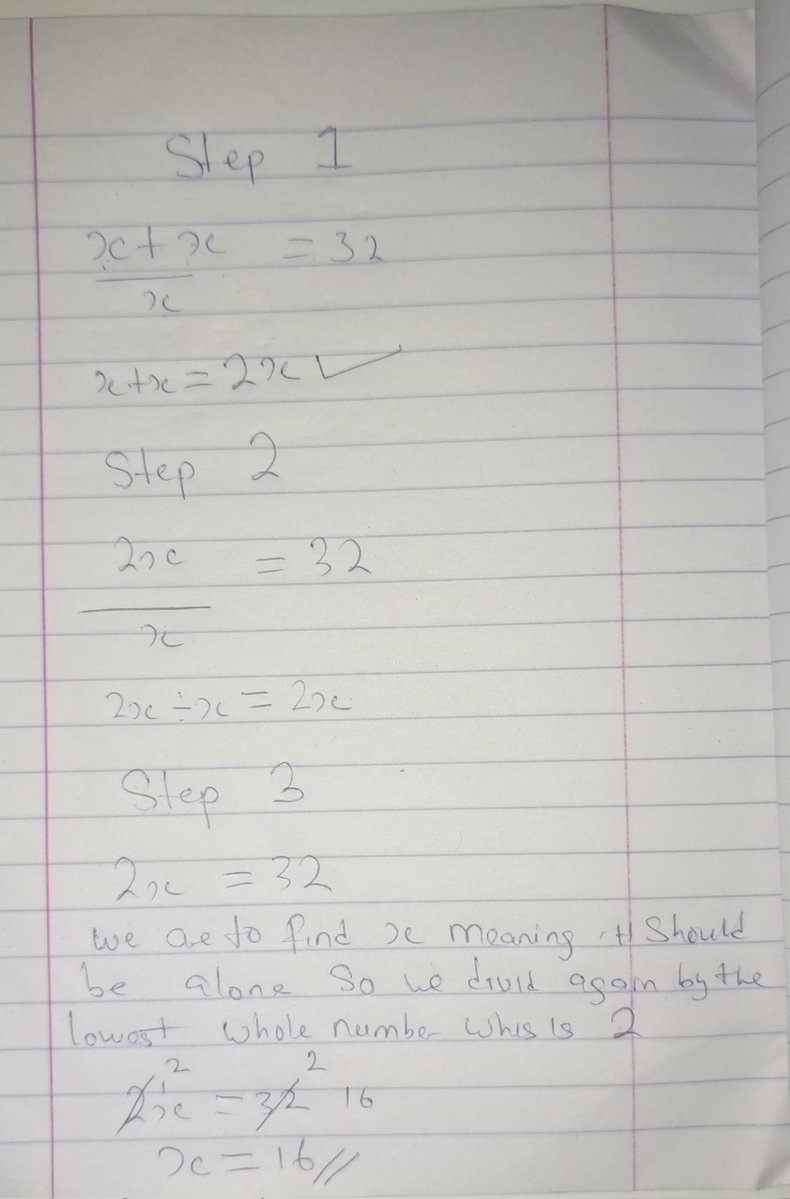 Step 1
x + x = 32
x
x + x = 2x ✓
Step 2
2x = 32
x
2x ÷ x = 2x
Step 3
2x = 32
we are to find x meaning it Should
be alone So we divid again by the
lowest whole number whis is 2
2 2
2x = 32 16
x = 16//